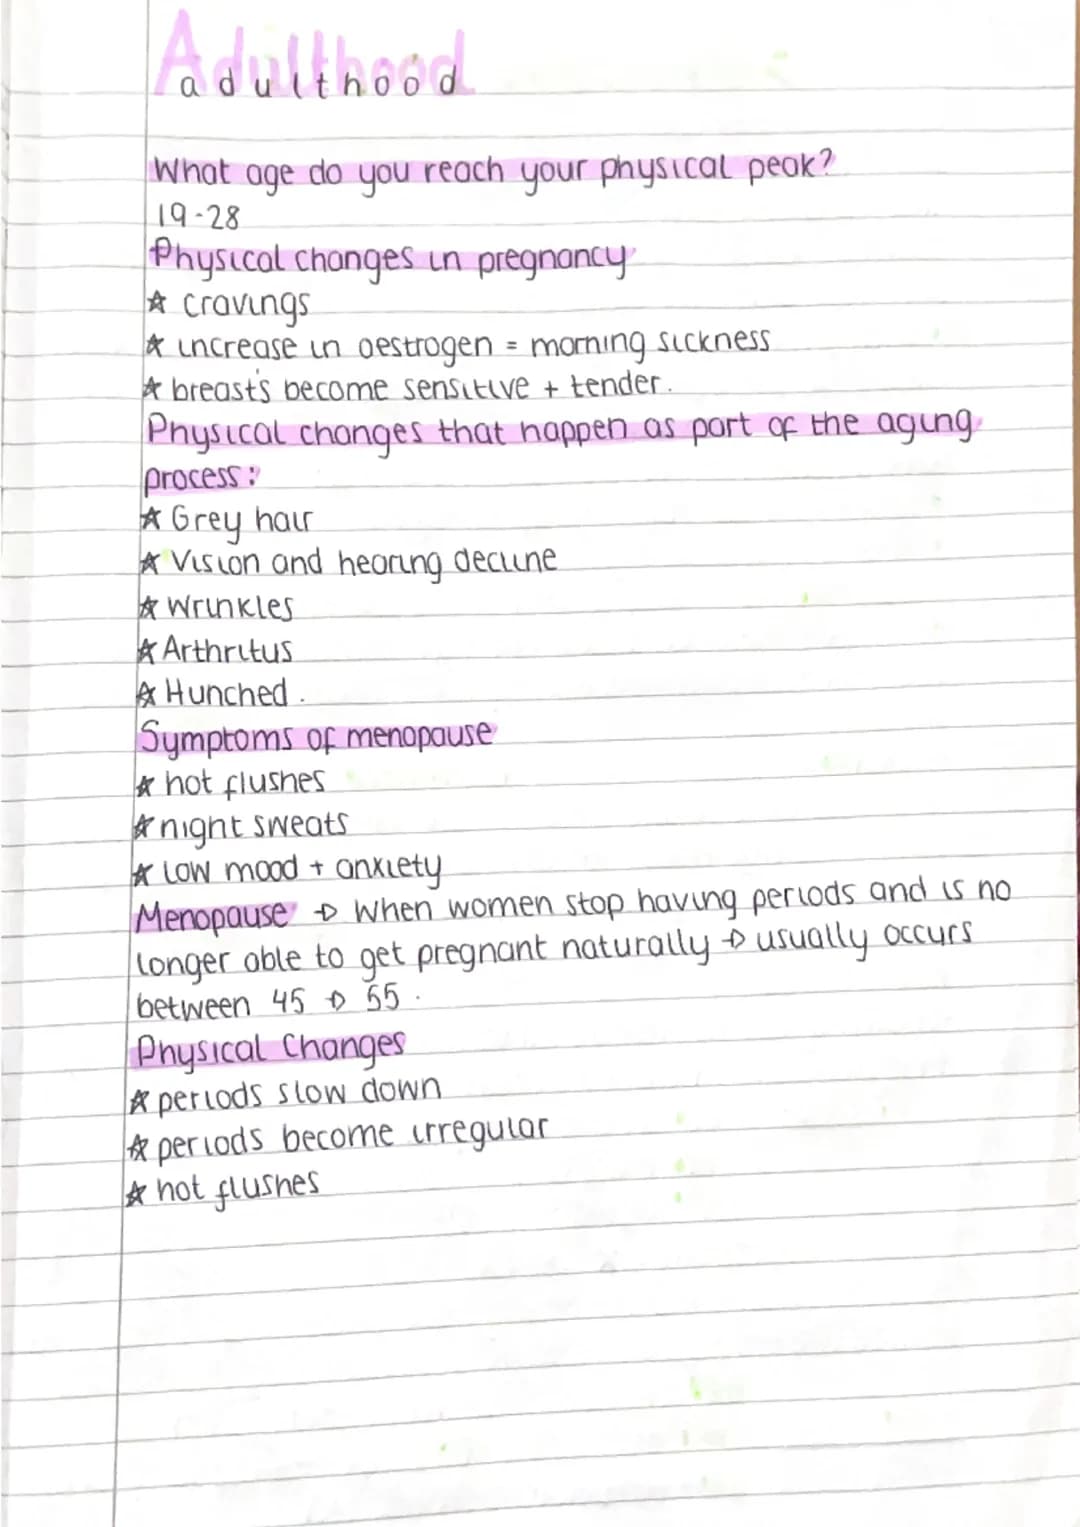 Adulthood
adulthood
What age do you reach your physical peak?
19-28
Physical changes in pregnancy
☆ cravings
☆ increase in oestrogen = morning sickness
☆ breasts become sensitive + tender.
Physical changes that happen as part of the aging
process:
☆ Grey hair
☆ Vision and hearing decline
☆ Wrinkles
☆ Arthritus
☆ Hunched.
Symptoms of menopause
☆ hot flushes
☆ night sweats
☆ low mood + anxiety
Menopause → When women stop having periods and is no
longer able to get pregnant naturally → usually occurs
between 45 → 55.
Physical Changes
☆ periods slow down
☆ periods become irregular
☆ hot flushes